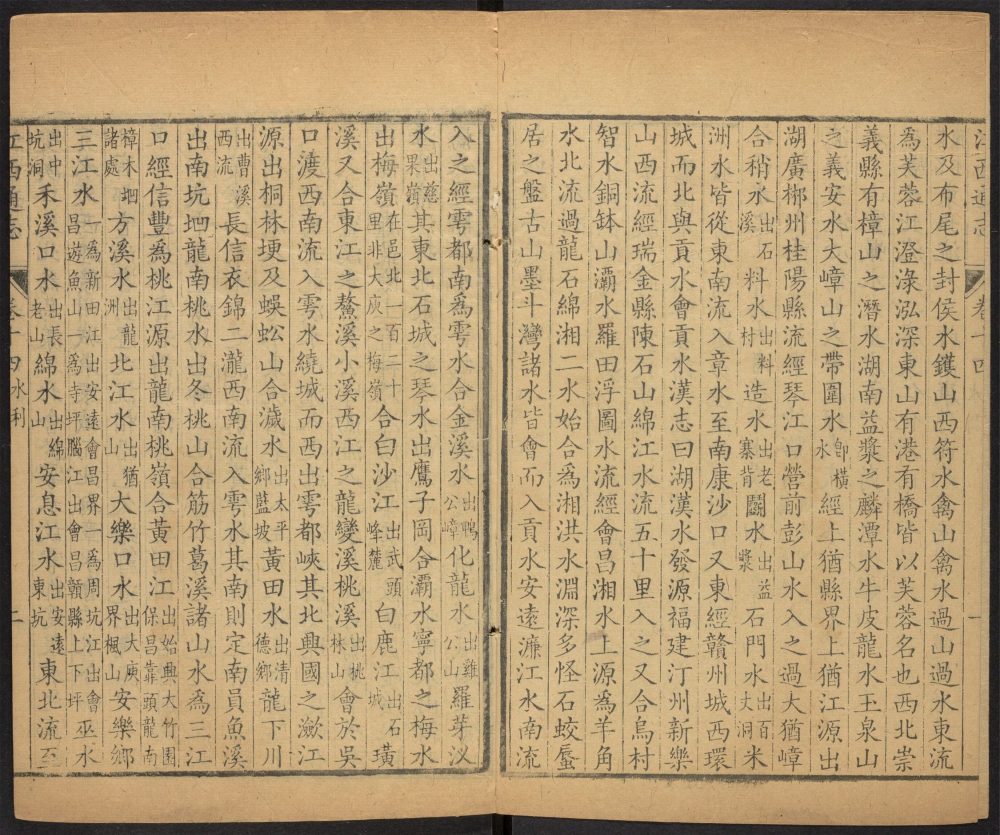 江西通志 卷十四 一
水及布尾之封侯水鑊山西符水禽山禽水過山過水東流
為芙蓉江澄淥泓深東山有港有橋皆以芙蓉名也西北崇
義縣有樟山之潛水湖南益漿之麟潭水牛皮龍水玉泉山
之義安水大嶂山之帶圍水即橫水經上猶縣界上猶江源出
湖廣郴州桂陽縣流經琴江口營前彭山水入之過大猶嶂
合稍水出石溪料水出料村造水出老寨背鬬水出益漿石門水出百丈洞米
洲水皆從東南流入章水至南康沙口又東經贛州城西環
城而北與貢水會貢水漢志曰湖漢水發源福建汀州新樂
山西流經瑞金縣陳石山綿江水流五十里入之又合烏村
智水銅鉢山灞水羅田浮圖水流經會昌湘水上源為羊角
水北流過龍石綿湘二水始合為湘洪水淵深多怪石蛟蜃
居之盤古山墨斗灣諸水皆會而入貢水安遠濂江水南流
入之經雩都南為雩水合金溪水出鴨公嶂化龍水出雞公山羅芽汊
水出慈果嶺其東北石城之琴水出鷹子岡合灞水寧都之梅水
出梅嶺在邑北一百二十里非大庾之梅嶺合白沙江出武頭峰麓白鹿江出石城璜
溪又合東江之鰲溪小溪西江之龍變溪桃溪出桃林山會於吳
口渡西南流入雩水繞城而西出雩都峽其北興國之瀲江
源出桐林埂及蜈蚣山合濊水出太平鄉藍坡黃田水出清德鄉龍下川
出曹溪西流長信衣錦二瀧西南流入雩水其南則定南員魚溪
出南坑㘭龍南桃水出冬桃山合筋竹葛溪諸山水為三江
口經信豐為桃江源出龍南桃嶺合黃田江出始興大竹園保昌靠頭龍南
樟木㘭諸處方溪水出龍洲北江水出猶山大樂口水出大庾界楓山安樂鄉
三江水一為新田江出安遠會昌界一為周坑江出會昌遊魚山一為寺坪腦江出會昌贛縣上下坪巫水
出中坑洞禾溪口水出長老山綿水出綿山安息江水出安遠東坑東北流至
江西通志 卷十四 水利 二